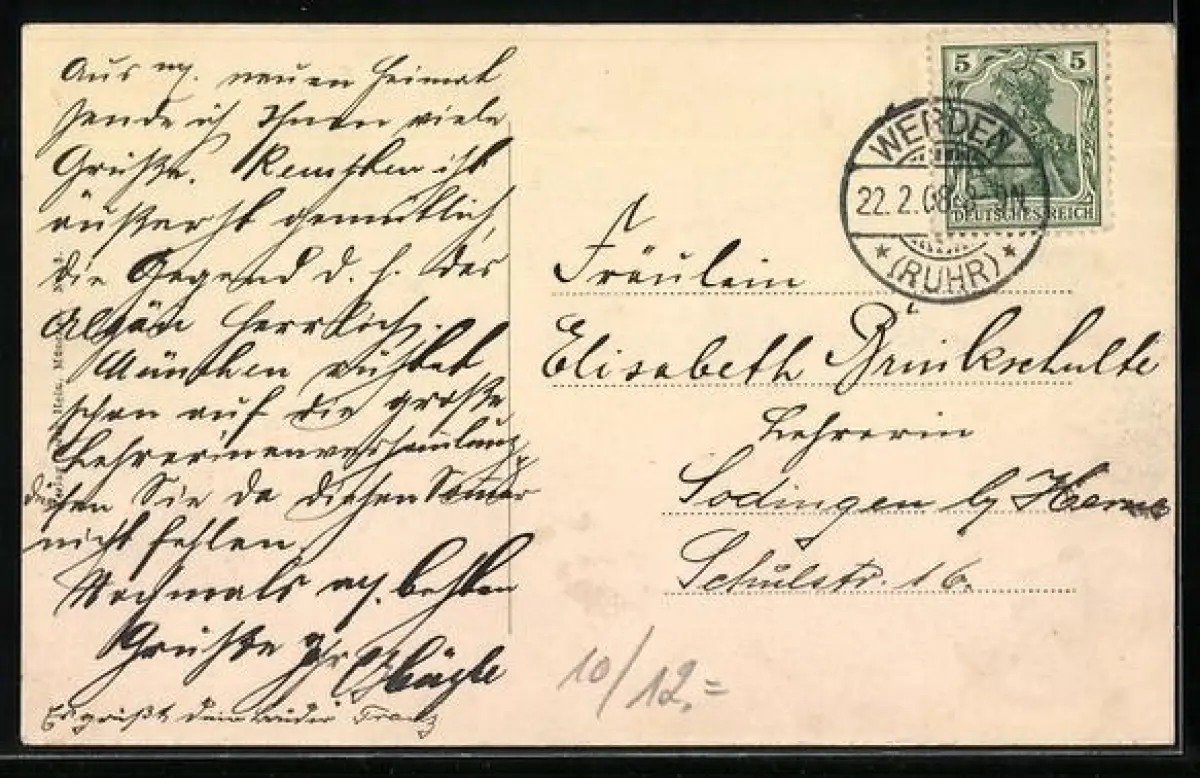 Aus m. neuen Heimat
sende ich Ihnen viele
Grüße. Kempten ist
äußerst gemütlich,
die Gegend d. h. das
Algäu herrlich.
München rüstet
schon auf die große
Lehrerinenversammlung,
dürfen Sie da diesen Sommer
nicht fehlen.
Nochmals m. besten
Grüße Ihr
Es grüßt dein Bruder Franz
5 5
DEUTSCHES REICH
WERDEN
22.2.08. 8-9N
* (RUHR) *
Fräulein
Elisabeth Brinkschulte
Lehrerin
Sodingen b/ Herne
Schulstr. 16.
10/12,=